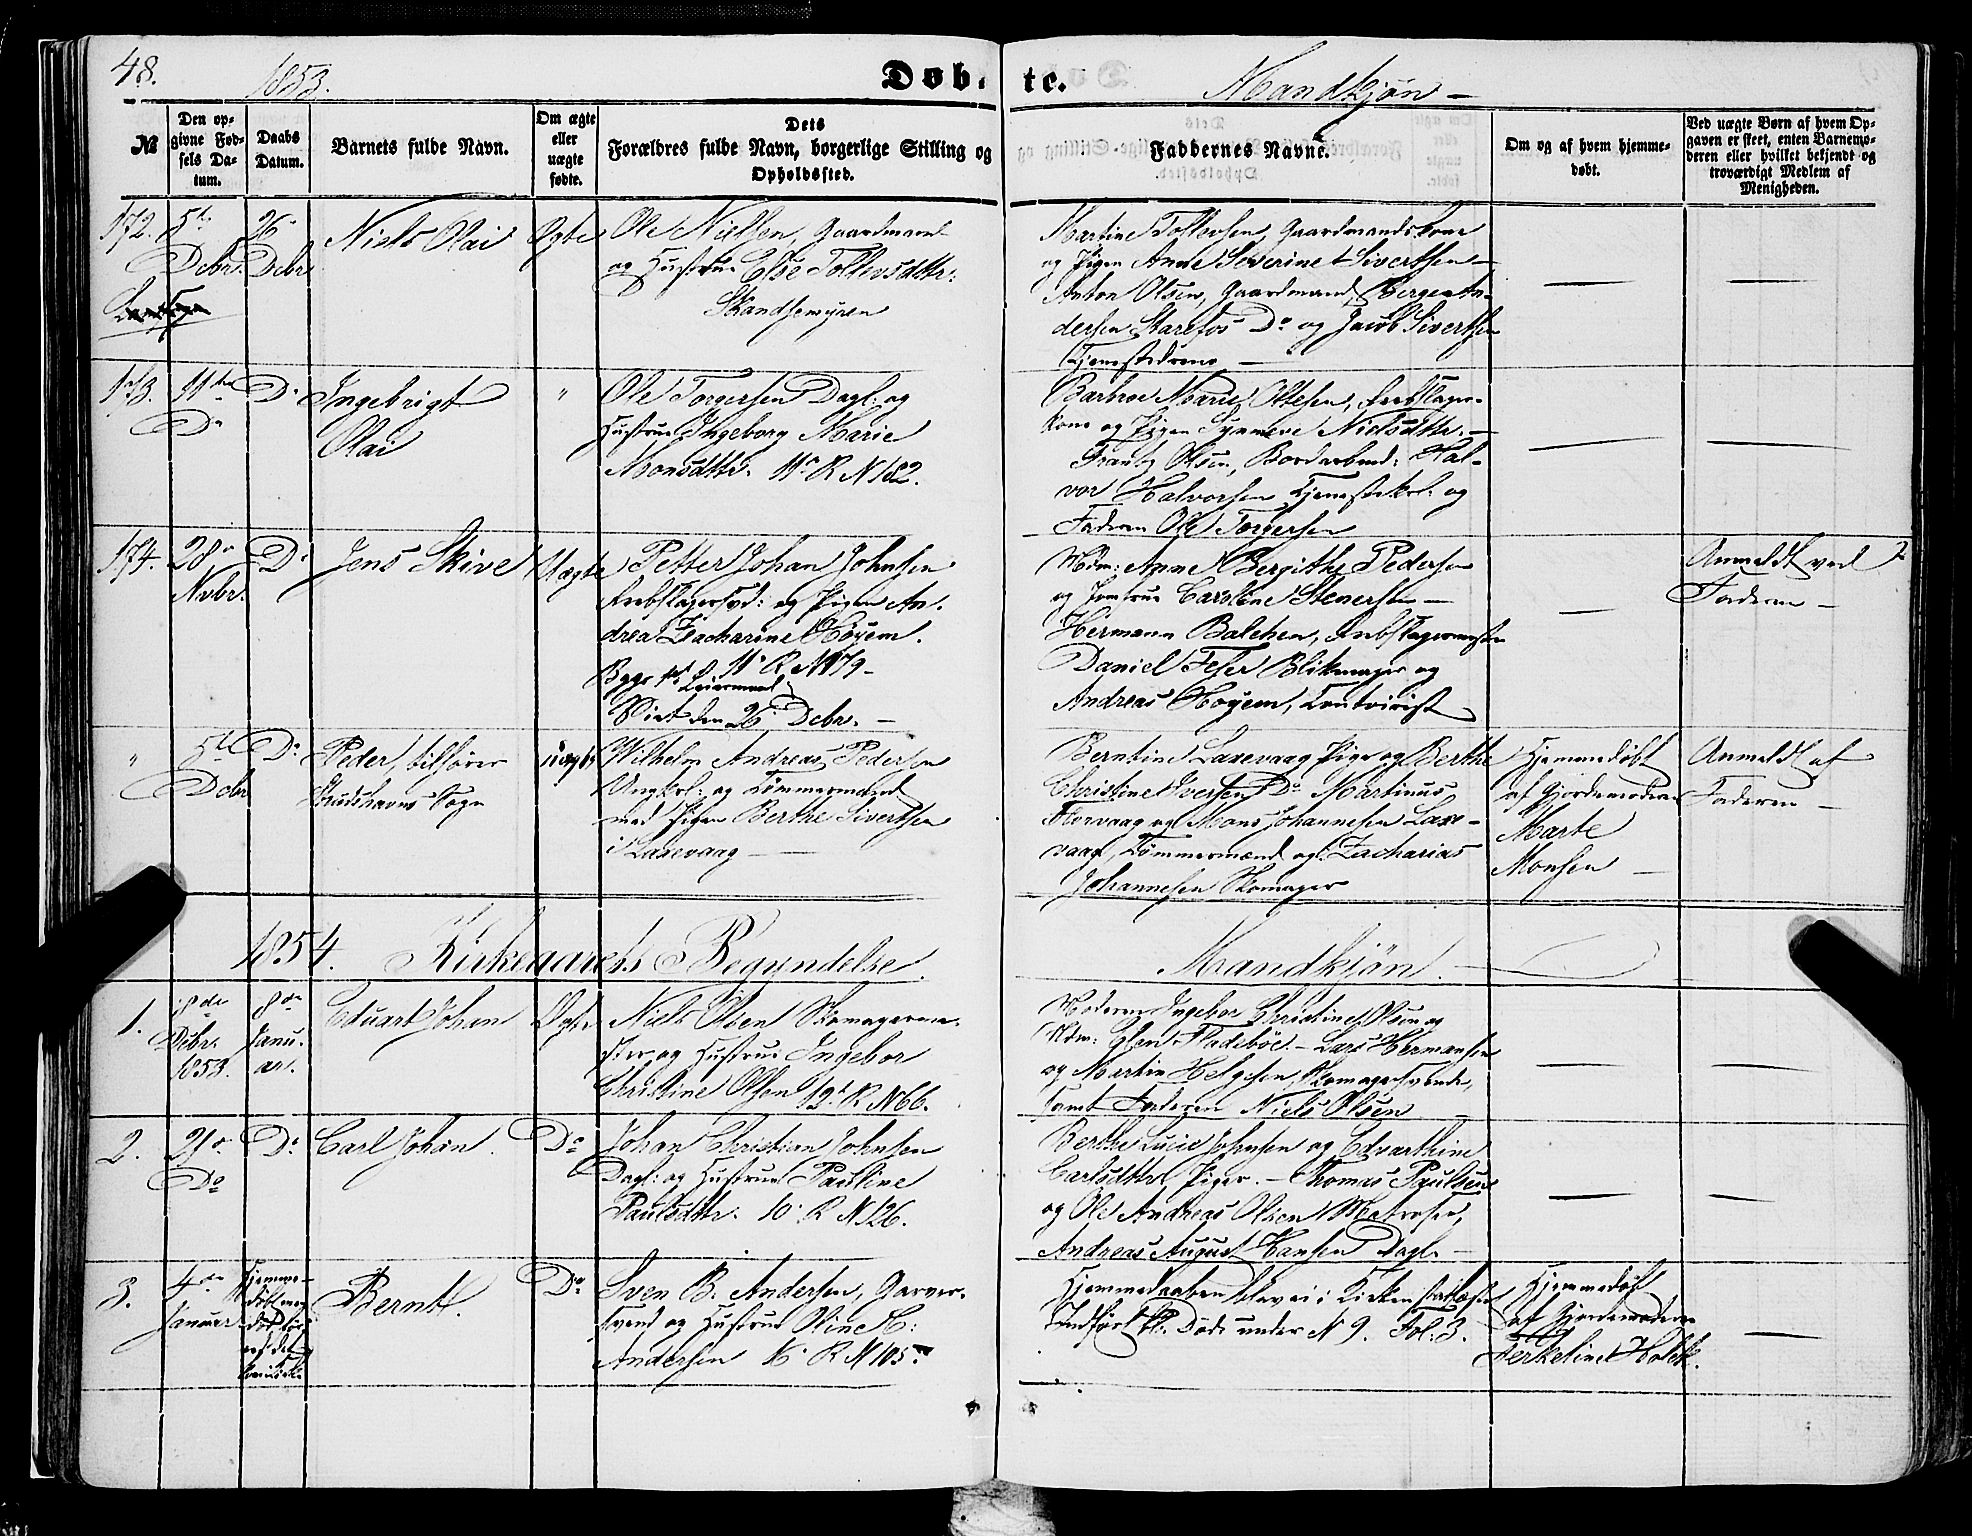 48.
1853.
Døb-
te.
Mandkjøn -
№
Den op-
givne Fød-
sels Da-
tum.
Daabs
Datum.
Barnets fulde Navn.
Om ægte
eller
uægte
fødte.
Dets
Forældres fulde Navn, borgerlige Stilling og
Opholdssted.
Faddernes Navne.
Om og af hvem hjemme-
døbt.
Ved uægte Børn af hvem Op-
gaven er skeet, enten Barnemo-
deren eller hvilket bekjendt og
troværdigt Medlem af
Menigheden.
172.
5te
Debr.
26
Debr.
Niels Olai
Ægte
Ole Nielsen, Gaardmand
og Hustrue Else Tollevsdttr:
Skandsemyren
Martine Tollevsen, Gaardmandskone
og Pigen Anne Severine Sivertsen -
Anton Olsen, Gaardmand, Berge An-
dersen Starefos Do og Jacob Sivertsen
Tjenestedreng -
173.
11te
Do
Do
Ingebrigt
Olai
"
Ole Torgersen Dagl: og
Hustrue Ingeborg Marie
Monsdttr. 11te R N 182.
Barbroe Marie Ottesen,
kone og Pigen Synneve Nielsdttr. -
Frantz Olsen, Bordarbeid: Hal-
vor Halvorsen Tjenestekrl: og
Faderen Ole Torgersen
174.
28
Nvbr.
Do
Jens Skive
Uægte
Petter Johan Johnsen
Rebslagersvd: og Pigen An-
drea Zacharine Høyem.
11te R N 179 -
Viet den 26 Debr. -
Mdm: Anne Bergithe Pedersen
og Jomfrue Caroline Stenersen -
Hermann Balchen, Rebslagermester
Daniel Feser Blikmager og
Andreas Høyem, Contoirist
Anmeldt ved
Faderen -
"
5te
Debr
Do
Peder, tilhører
Sogn
uægte
Wilhelm Andreas Pedersen
Ungkrl: og Tømmermand
med Pigen Berthe Sivertsen
i Laxevaag -
Berntine Laxevaag Pige og Berthe
Christine Iversen Do Martinus
Florvaag og Mons Johannesen Laxe-
vaag, Tømmermænd og Zacharias
Johannesen Skomager
Hjemmedøbt
af Gjordemoderen
Marte
Monsen -
Anmeldt af
Faderen -
1854. Kirkeaarets Begyndelse.
Mandkjøn.
1.
8de
Debr.
1853.
8de
Janu-
ar.
Eduart Johan
Ægte
Niels Olsen Skomagerme-
ster og Hustrue Ingebor
Christine Olsen 19de R N 66.
Moderen Ingebor Christine Olsen og
Mdm: Elen Fladebøe. - Lars Hermansen
og Martin Helgesen, Skomagersvende,
samt Faderen Niels Olsen
2.
21
Do
Do
Carl Johan.
Do
Johan Christian Johnsen
Dagl: og Hustrue Pauline
Paulsdttr. 10 R N 126.
Berthe Lucie Johnsen og Edvarthine
Carlsdttr, Piger. - Thomas Paulsen
og Ole Andreas Olsen Matroser,
Andreas August Hansen Dagl. -
3.
4de
Januar
Hjemme-
døbt
Bernt.
Do
Sven B. Andersen, Garver-
svend og Hustrue Oline C:
Andersen R N 105.
Hjemmedaaben blev ei i Kirken
Indført Døde under N 9. Fol: 3.
Hjemmedøbt
af Gjordemoderen
Terkeline Holck.